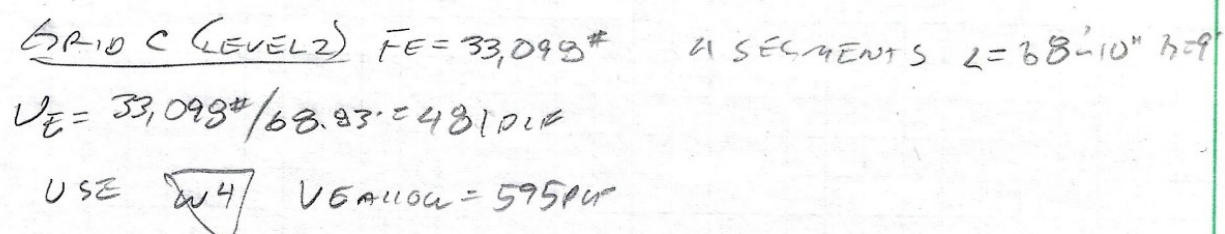 GRID C (LEVEL 2) FE = 33,098# 4 SEGMENTS L = 68'-10" h=9'
VE = 33,098#/68.83' = 481 PLF
USE W4 VE ALLOW = 595 PLF